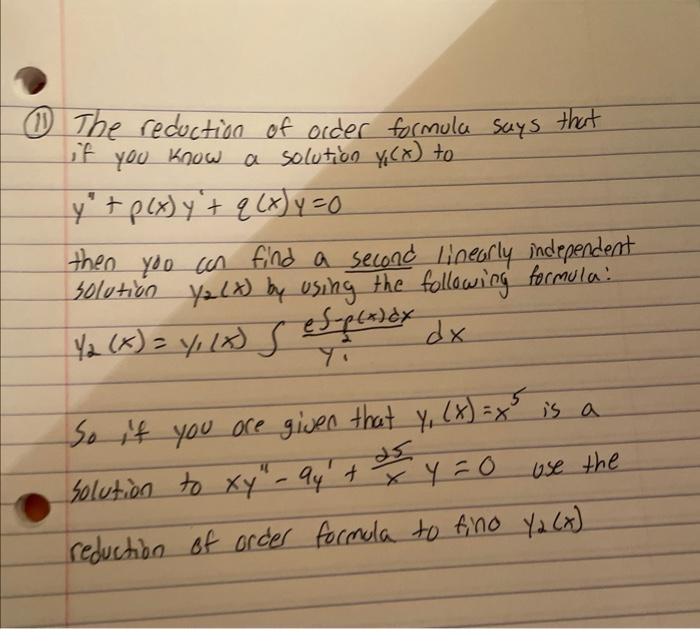 (11) The reduction of order formula says that
if you know a solution y₁(x) to
y'' + p(x)y' + q(x)y = 0
then you can find a second linearly independent
solution y₂(x) by using the following formula:
y₂(x) = y₁(x) ∫ e^(∫-p(x)dx) / y₁² dx
So if you are given that y₁(x) = x⁵ is a
solution to xy'' - 9y' + 25/x y = 0 use the
reduction of order formula to find y₂(x)